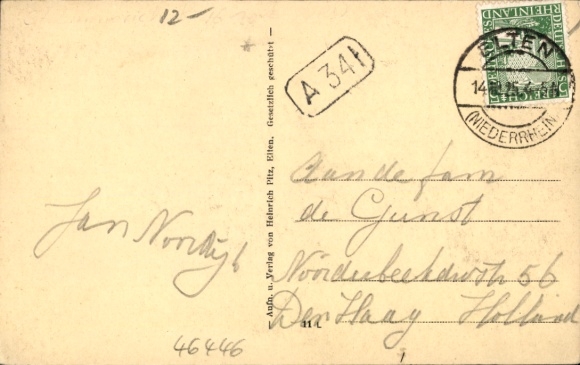 12-
A 341
ELTEN
(NIEDERRHEIN)
RHEINLAND
Aufn. u. Verlag von Heinrich Pitz, Elten. Gesetzlich geschützt
Aan de fam
de Gunst
Noorderbeekdwstr 56
Den Haag Holland
Jan Noordijk
46446